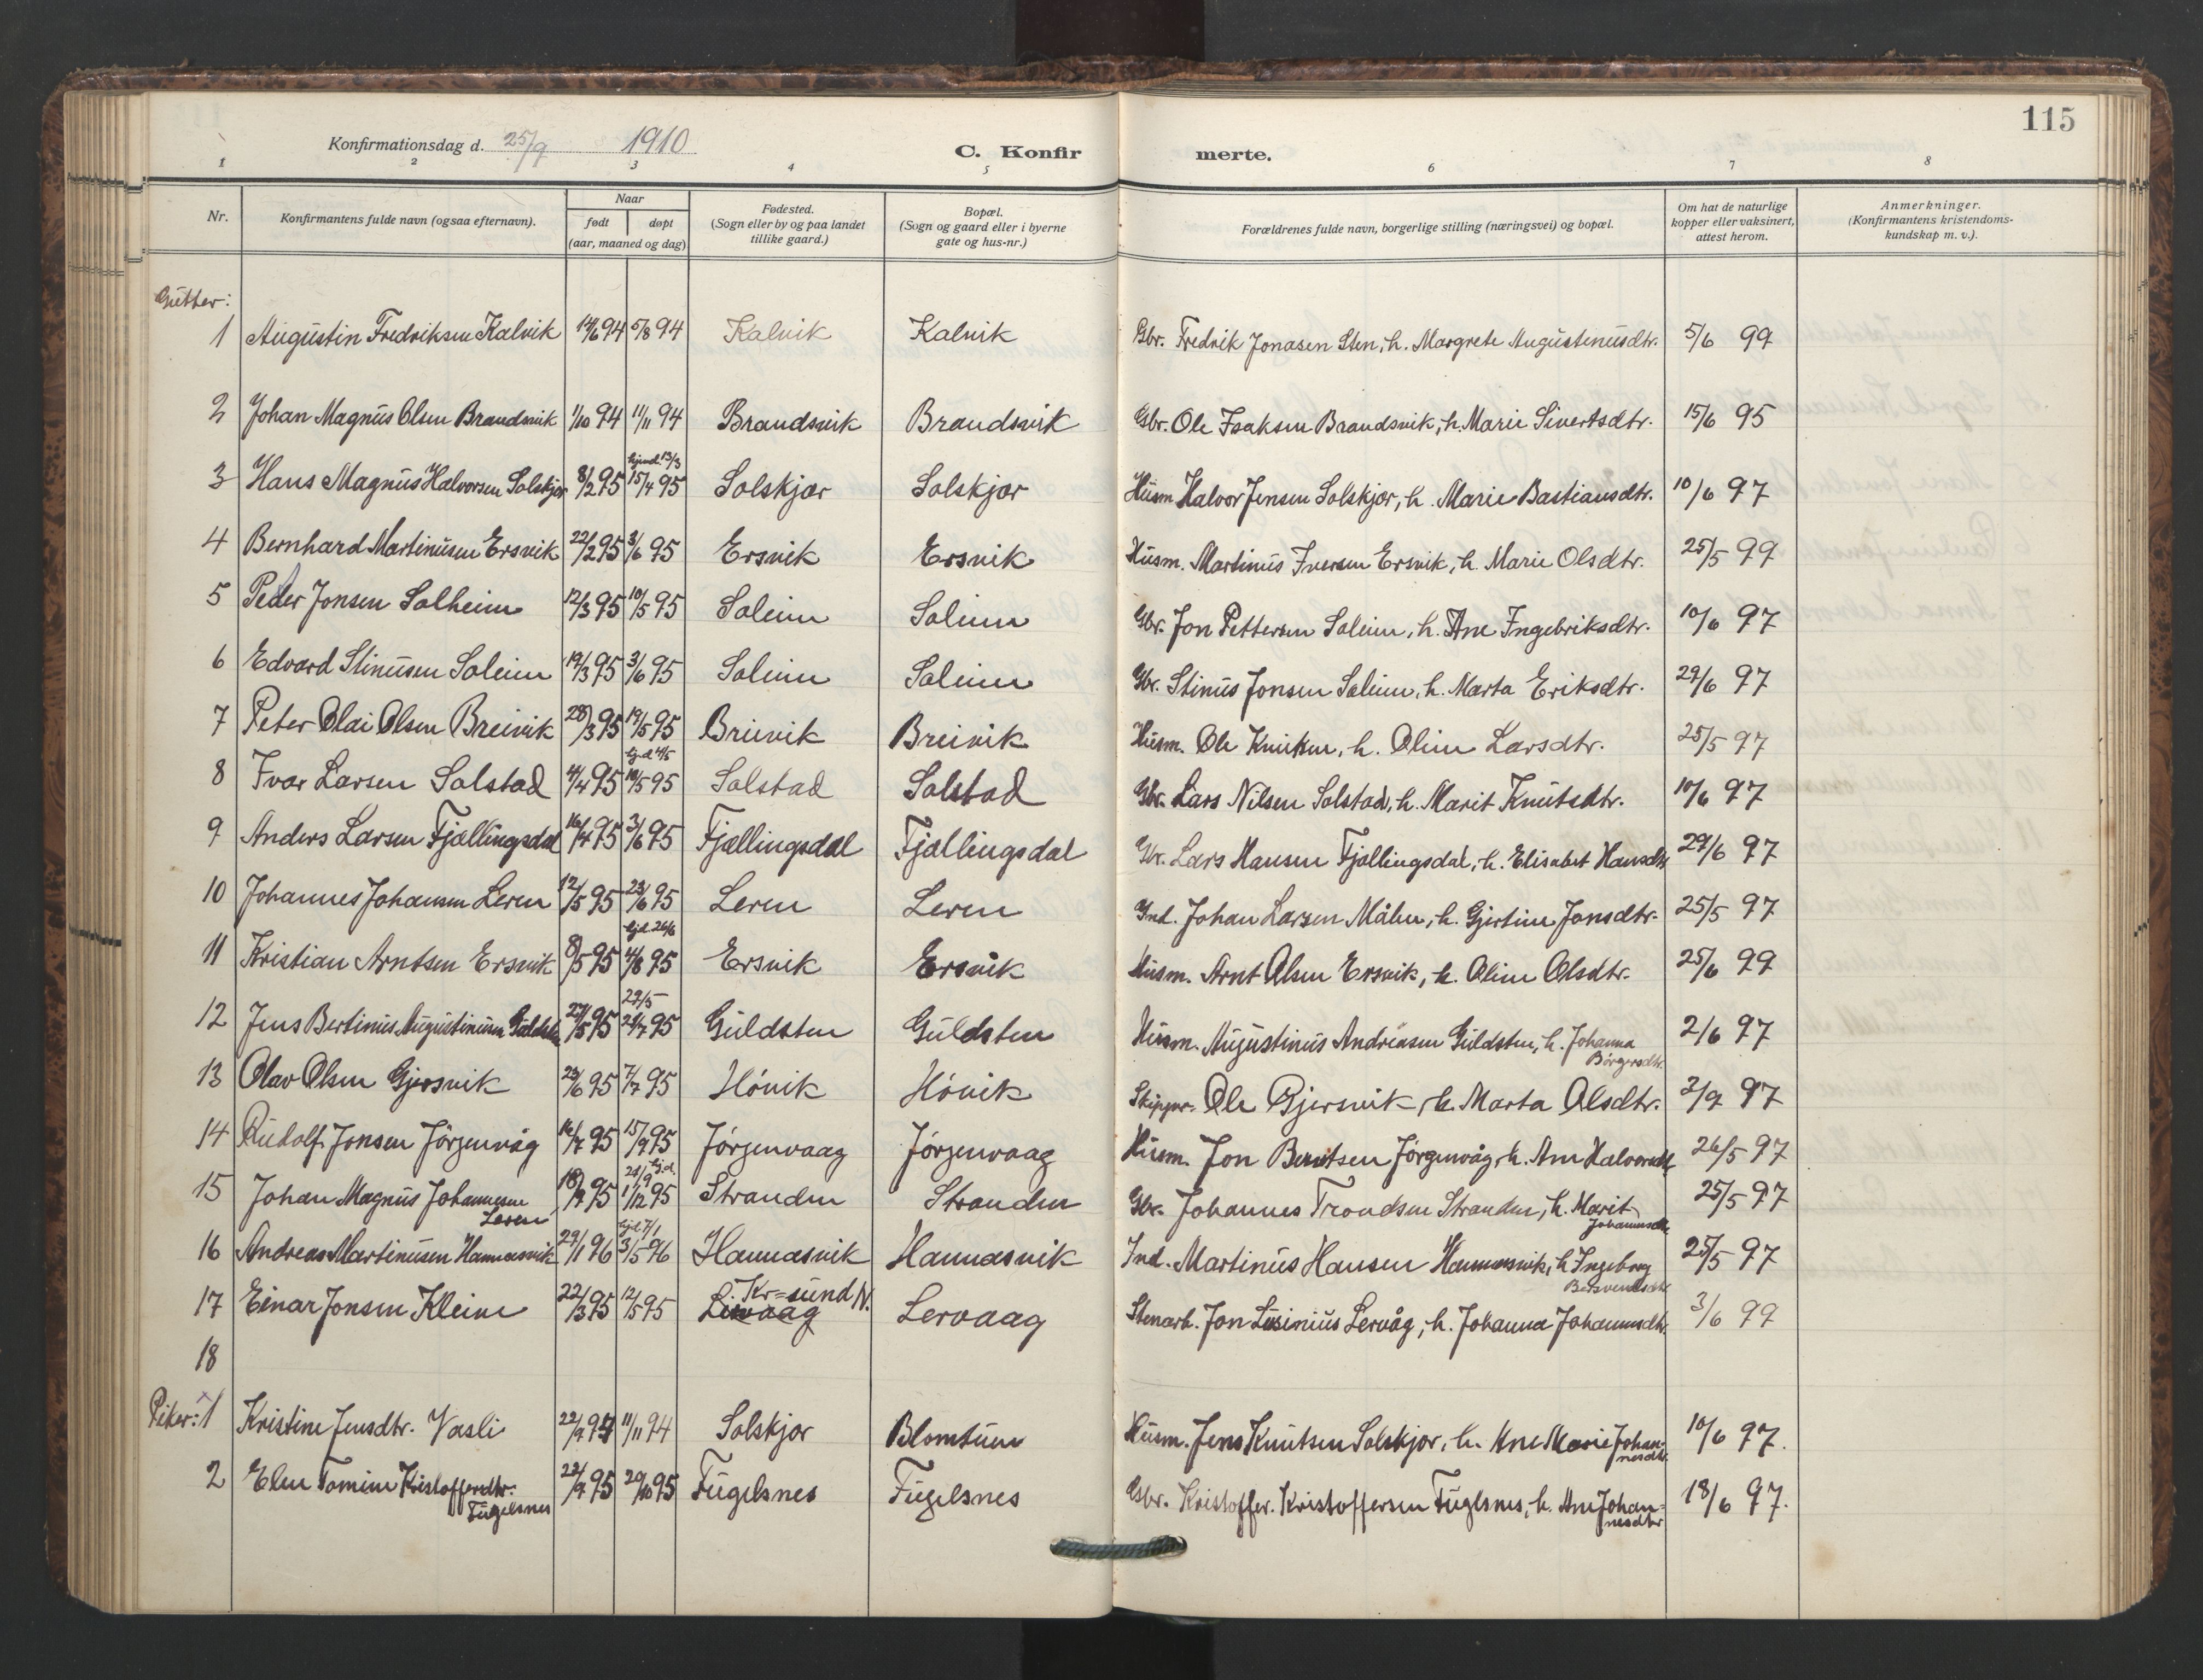 115
Konfirmationsdag d. 25/9 1910
C. Konfirmerte.
1 2 3 4 5 6 7 8
Nr.
Konfirmantens fulde navn (ogsaa efternavn).
Naar
født døpt
(aar, maaned og dag)
Fødested.
(Sogn eller by og paa landet
tillike gaard.)
Bopæl.
(Sogn og gaard eller i byerne
gate og hus-nr.)
Forældrenes fulde navn, borgerlige stilling (næringsvei) og bopæl.
Om hat de naturlige
kopper eller vaksinert,
attest herom.
Anmerkninger.
(Konfirmantens kristendoms-
kundskap m. v.).
Gutter:
1 Augustin Fredriksen Kalvik 14/6 94 5/8 94 Kalvik Kalvik Gbr. Fredrik Jonasen Sten, h. Margrete Augustinusdtr. 5/6 99
2 Johan Magnus Olsen Brandsvik 1/10 94 11/11 94 Brandsvik Brandsvik Gbr. Ole Isaksen Brandsvik, h. Marie Sivertsdtr. 15/6 95
3 Hans Magnus Halvorsen Solskjør 8/2 95 hjemd. 13/3 15/4 95 Solskjør Solskjør Husm Halvor Jensen Solskjør, h. Marie Bastiansdtr. 10/6 97
4 Bernhard Martinusen Ersvik 22/2 95 3/6 95 Ersvik Ersvik Husm. Martinus Iversen Ersvik, h. Marie Olsdtr. 25/5 99
5 Peder Jonsen Solheim 12/3 95 10/5 95 Soleim Soleim Gbr. Jon Pettersen Soleim, h. Ane Ingebriksdtr. 10/6 97
6 Edvard Stinusen Soleim 19/3 95 3/6 95 Soleim Soleim Gbr. Stinus Jonsen Soleim, h. Marta Eriksdtr. 29/6 97
7 Peter Olai Olsen Breivik 28/3 95 19/5 95 Breivik Breivik Husm. Ole Knutsen, h. Oline Larsdtr. 25/5 97
8 Ivar Larsen Solstad 4/4 95 hjd 4/5 10/5 95 Solstad Solstad Gbr. Lars Nilsen Solstad, h. Marit Knutsdtr. 10/6 97
9 Anders Larsen Fjellingsdal 16/4 95 3/6 95 Fjellingsdal Fjellingsdal Gbr. Lars Hansen Fjellingsdal, h. Elisabet Hansdtr 29/6 97
10 Johannes Johansen Leren 12/5 95 23/6 95 Leren Leren Ind. Johan Larsen Målen, h. Gjertine Jonsdtr. 25/5 97
11 Kristian Arntsen Ersvik 8/5 95 hjd 26/6 4/8 95 Ersvik Ersvik Husm. Arnt Olsen Ersvik, h. Oline Olsdtr. 25/6 99
12 Jens Bertinus Augustinusen Guldsten 27/5 95 29/5 21/7 95 Guldsten Guldsten Husm. Augustinus Andreasen Guldsten, h. Johanna
Børgersdtr. 2/6 97
13 Olav Olsen Gjersvik 23/6 95 7/7 95 Hóvik Hóvik Skipper. Ole Gjersvik, h. Marta Olsdtr. 2/9 97
14 Rudolf Jonsen Jörgenvåg 16/7 95 15/9 95 Jórgenvaag Jórgenvaag Husm. Jon Berntsen Jörgenvåg, h. Ane Halvorsdtr 26/5 97
15 Johan Magnus Johannesen
Leren 18/9 95 21/9 hjd. 1/12 95 Stranden Stranden Gbr. Johannes Trondsen Stranden, h. Marit
Johannesdtr 25/5 97
16 Andreas Martinusen Hannasvik 29/1 96 hjd 7/1 3/5 96 Hannasvik Hannasvik Ind. Martinus Hansen Hannasvik, h. Ingeborg
25/5 97
17 Einar Jonsen Kleive 22/3 95 12/5 95 Kr=sund N. Lervaag Stenarb. Jon Lusinius Lervåg, h. Johanna Johannesdtr. 3/6 99
18
Piker: 1 Kristine Jensdtr. Vasli 22/9 94 11/11 94 Solskjør Blomtuen Husm. Jens Knutsen Solskjør, h. Ane Marie Johan-
nesdtr. 10/6 97.
2 Elen Tomine Kristoffersdtr.
Fugelsnes 22/9 95 20/10 95 Fugelsnes Fugelsnes Gbr. Kristoffer Kristoffersen Fuglsnes, h. Ane Johan=
nesdtr 18/6 97.